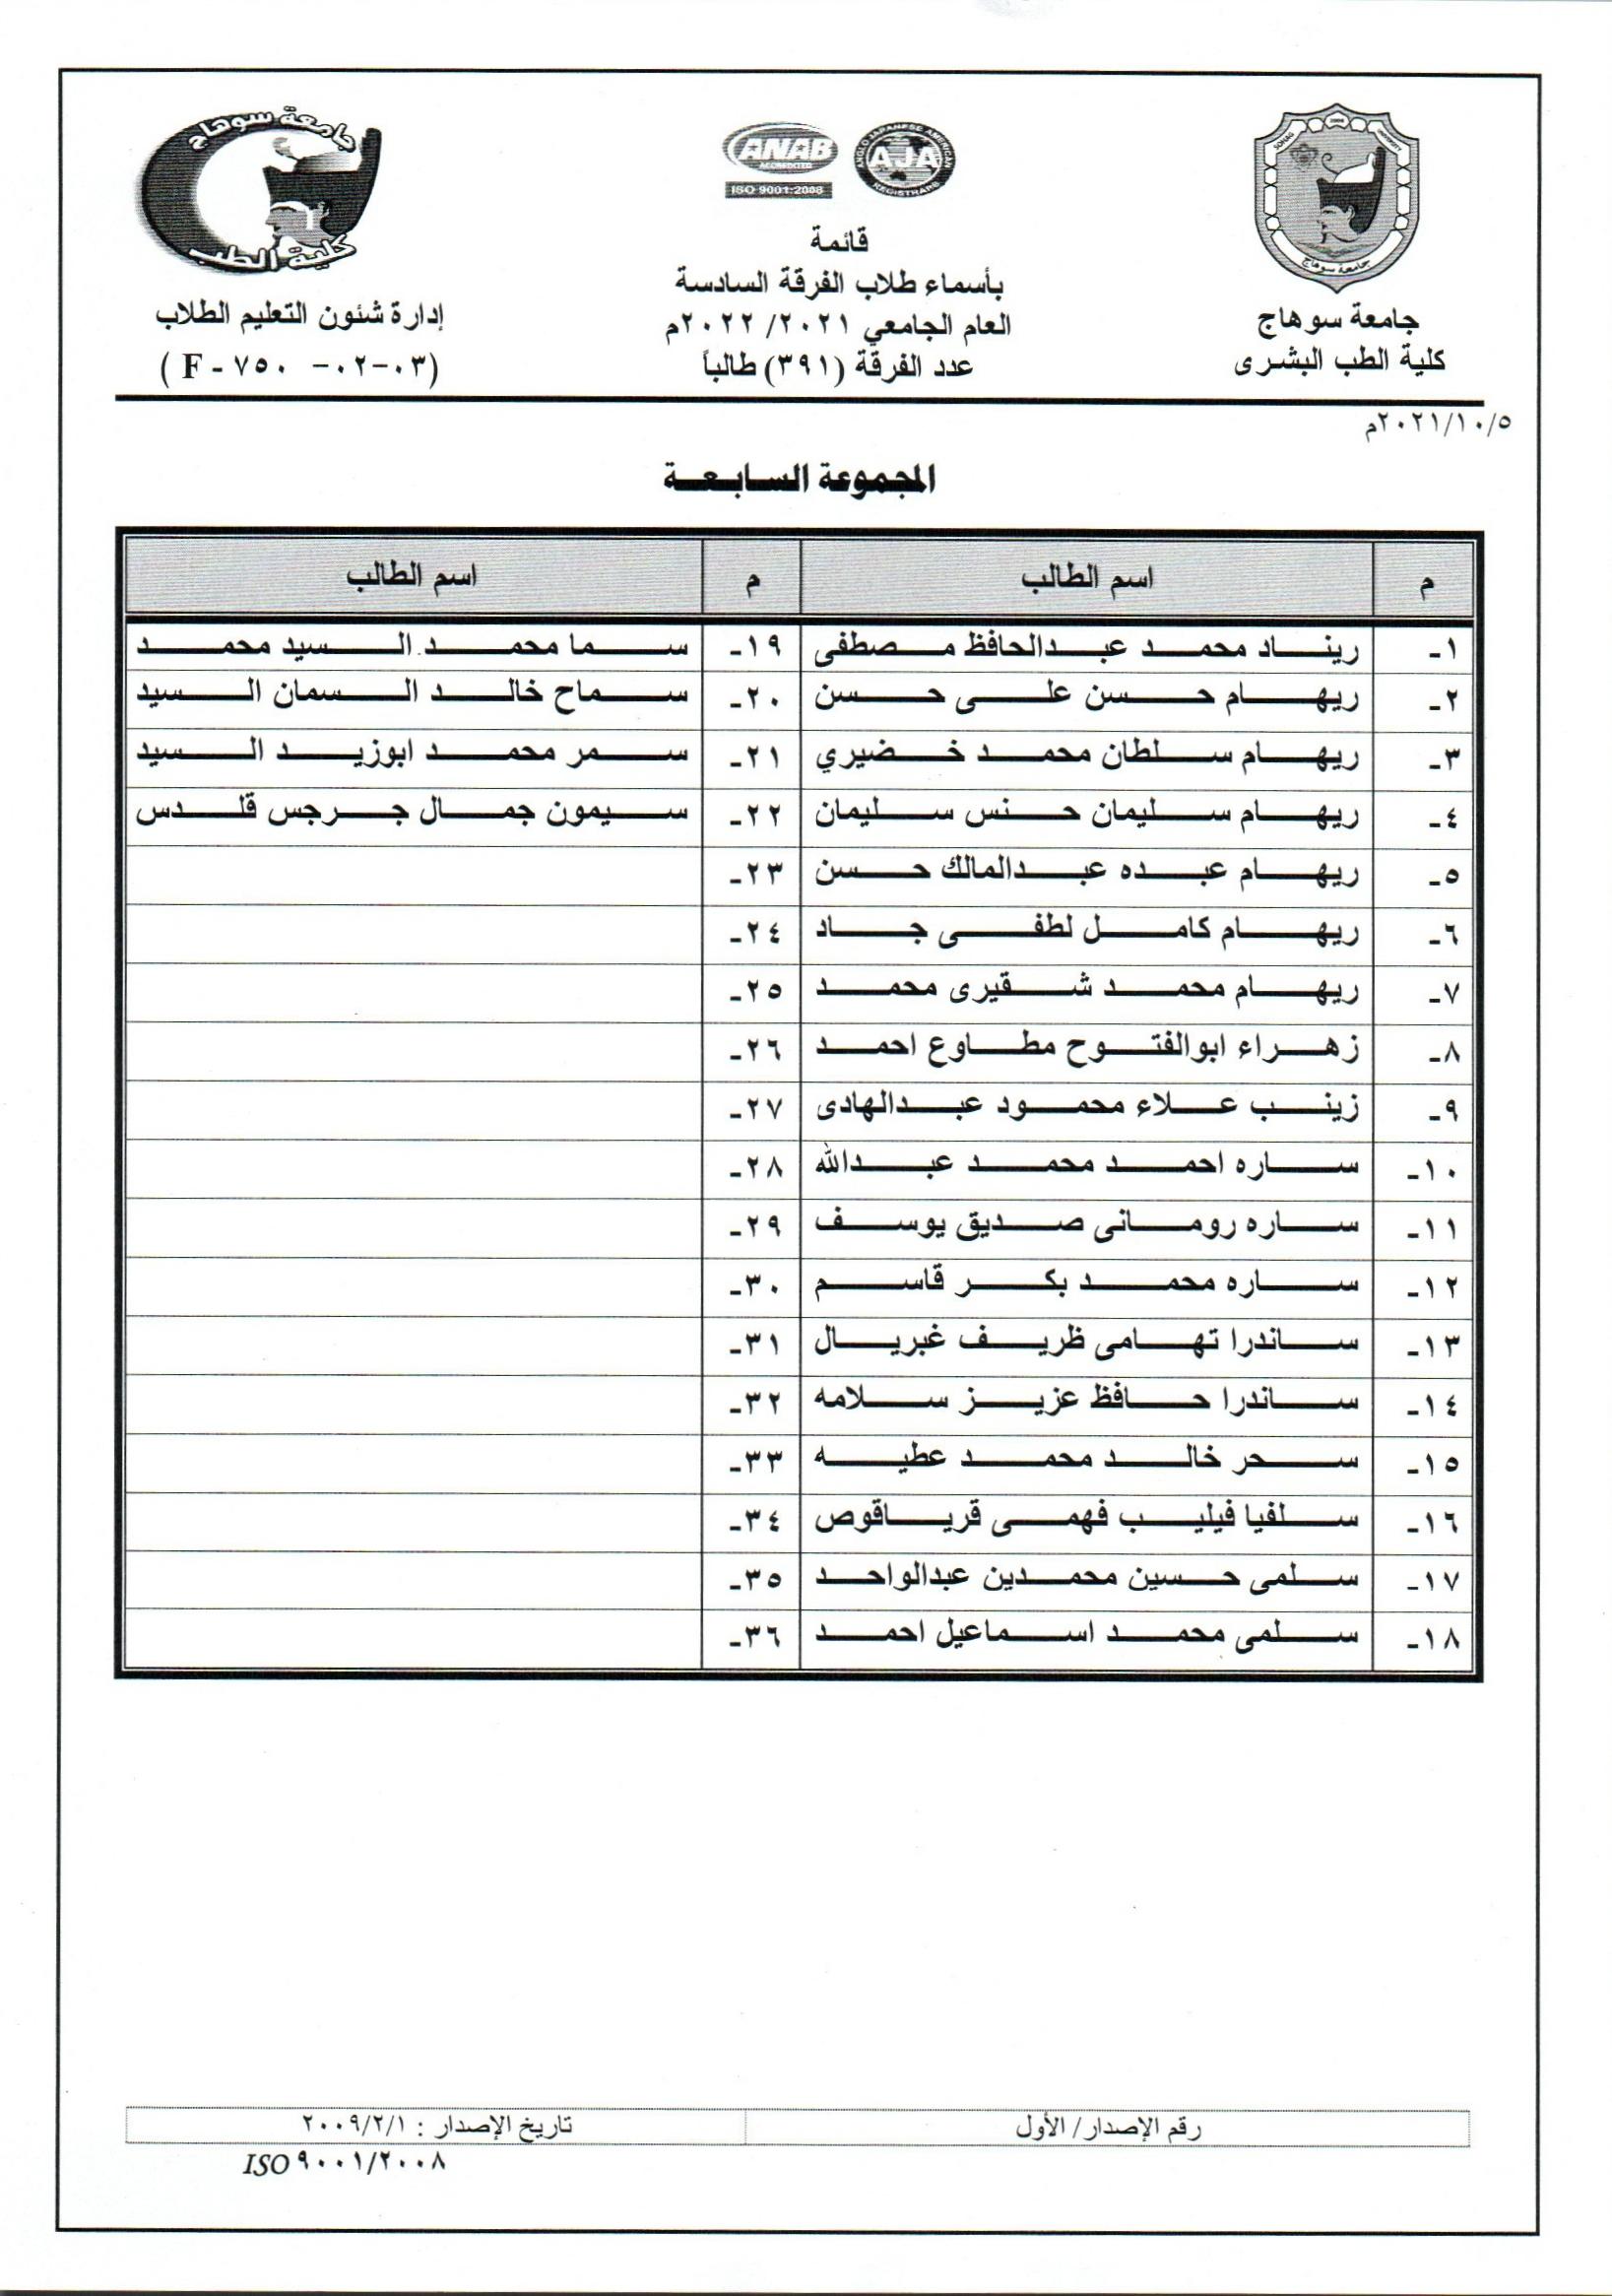 جامعة سوهاج
كلية الطب
ANAB
ACCREDITED
ISO 9001:2008
ANGLO JAPANESE AMERICAN
AJA
REGISTRARS
SOHAG UNIVERSITY
جامعة سوهاج
قائمة
بأسماء طلاب الفرقة السادسة
العام الجامعي ٢٠٢١/ ٢٠٢٢م
عدد الفرقة (٣٩١) طالباً
جامعة سوهاج
كلية الطب البشرى
إدارة شئون التعليم الطلاب
(F - ٧٥٠ -٠٢-٠٣)
٢٠٢١/١٠/٥م
المجموعة السابعة
م اسم الطالب م اسم الطالب
١- ريناد محمد عبدالحافظ مصطفى ١٩- سما محمد السيد محمد
٢- ريهام حسن على حسن ٢٠- سماح خالد السمان السيد
٣- ريهام سلطان محمد خضيري ٢١- سمر محمد ابوزيد السيد
٤- ريهام سليمان حنس سليمان ٢٢- سيمون جمال جرجس قلدس
٥- ريهام عبده عبدالمالك حسن ٢٣-
٦- ريهام كامل لطفى جاد ٢٤-
٧- ريهام محمد شقيرى محمد ٢٥-
٨- زهراء ابوالفتوح مطاوع احمد ٢٦-
٩- زينب علاء محمود عبدالهادى ٢٧-
١٠- ساره احمد محمد عبدالله ٢٨-
١١- ساره رومانى صديق يوسف ٢٩-
١٢- ساره محمد بكر قاسم ٣٠-
١٣- ساندرا تهامى ظريف غبريال ٣١-
١٤- ساندرا حافظ عزيز سلامه ٣٢-
١٥- سحر خالد محمد عطيه ٣٣-
١٦- سلفيا فيليب فهمى قرياقوص ٣٤-
١٧- سلمى حسين محمدين عبدالواحد ٣٥-
١٨- سلمى محمد اسماعيل احمد ٣٦-
رقم الإصدار/ الأول تاريخ الإصدار : ٢٠٠٩/٢/١
ISO ٩٠٠١/٢٠٠٨